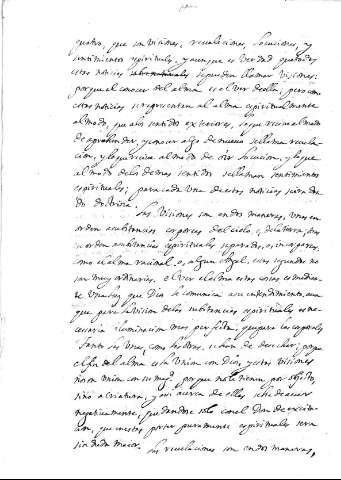 quatro, que son visiones, revelaciones, locuciones, y
sentimientos espirituales, y aunque es verdad que todas
estas noticias se pueden llamar visiones;
porque el conocer del alma es el ver de ella; pero como
estas noticias se representan al alma espiritualmente
al modo, que a los sentidos exteriores, lo que recive a modo
de aprehender, y conocer algo de nuevo se llama revela-
cion, y lo que recive al modo de oir locucion, y lo que
al modo de los demas sentidos se llaman sentimientos
espirituales; para cada una de estas noticias se irá dan
do doctrina.
Las visiones son en dos maneras, unas en
orden a substancias corporeas del cielo, o de la tierra,
u orden a substancias espirituales separadas, o, incorporeas,
como el alma racional, o, algun Angel. estas segundas no
son muy ordinarias. el ver el alma estas cosas es median-
te una luz que Dios le comunica a su entendimiento, aun
que para la vision de las substancias espirituales es ne-
cessaria iluminacion mas perfecta, que para las corporales
Tanto las unas, como las otras, se han de desechar; porque
el fin del alma es la union con Dios, y estas visiones
no son union con su Magd. porque no le tienen por objeto,
sino a criatura, y asi acerca de ellas se ha de aver
negativamente, quedandose solo con el
que en estas por ser puramente espirituales sera
sin duda maior. Las revelaciones son en dos maneras,